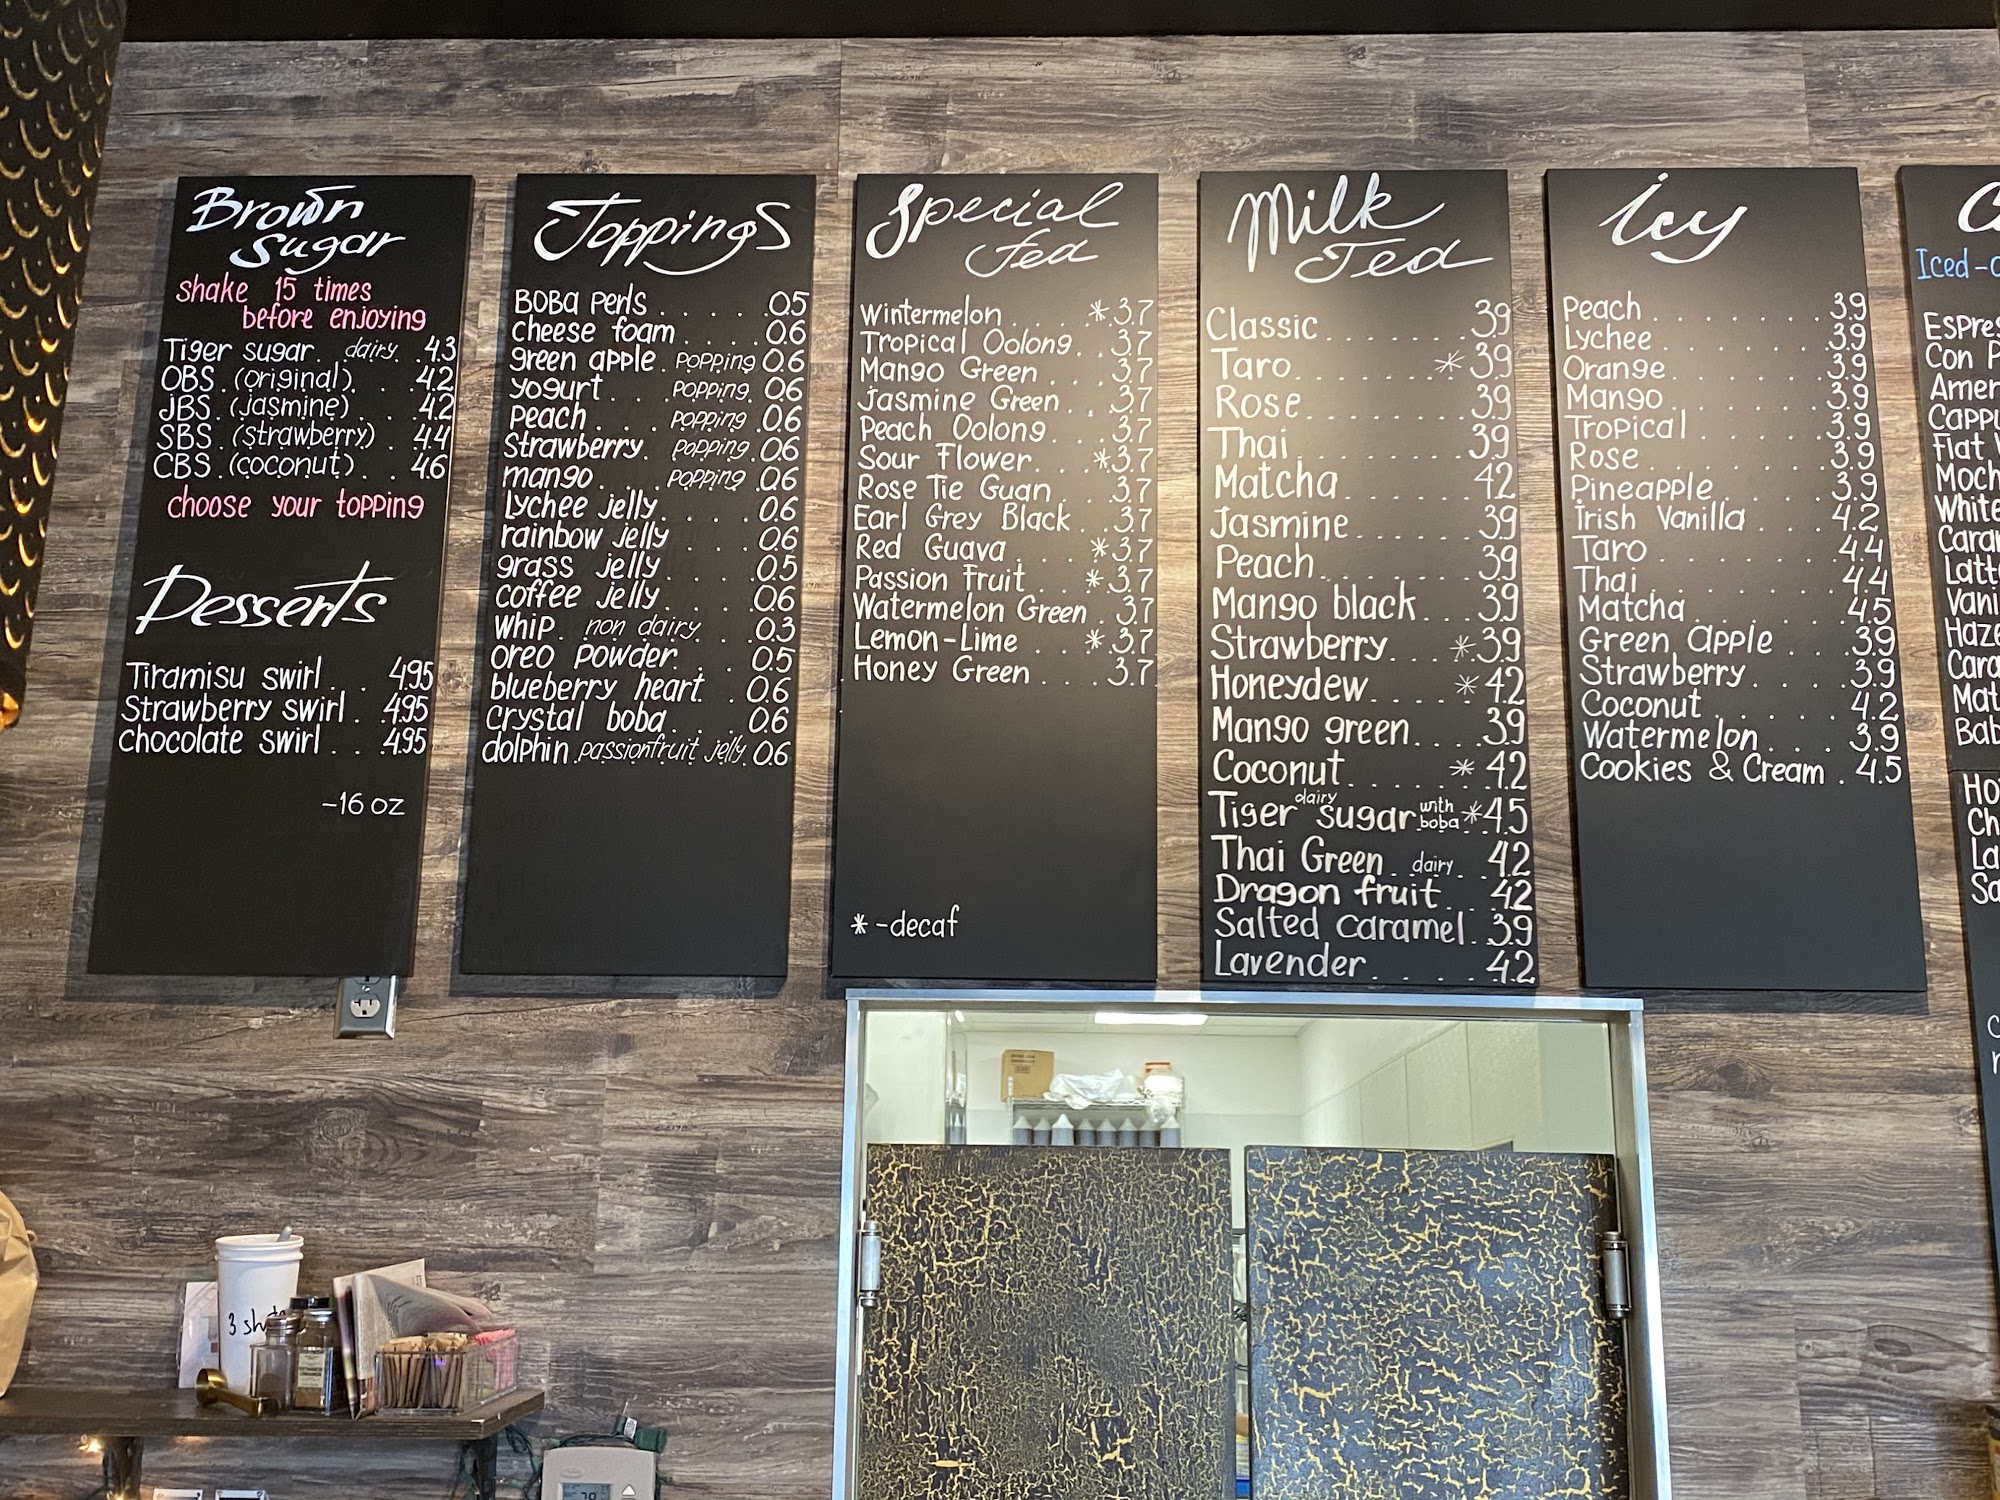 Brown
Sugar
shake 15 times
before enjoying
Tiger sugar. dairy. .4.3
OBS.(original). . .4.2
JBS.(jasmine). . .4.2
SBS.(strawberry). .4.4
CBS.(coconut). . 4.6
choose your topping
Desserts
Tiramisu swirl. . . 4.95
Strawberry swirl. .4.95
chocolate swirl. . .4.95
-16 oz
Toppings
BOBa perls. . . . . .0.5
cheese foam. . . . .0.6
green apple.popping 0.6
yogurt. . . popping. 0.6
peach. . . popping .0.6
Strawberry. popping.0.6
mango. . . popping .0.6
Lychee jelly. . . . .0.6
rainbow jelly. . . 0.6
grass jelly. . . . .0.5
coffee jelly. . . . .0.6
whip. non dairy. . .0.3
oreo powder. . . 0.5
blueberry heart. .0.6
crystal boba. . . .0.6
dolphin.passionfruit jelly.0.6
Special
Tea
Wintermelon. . . .*3.7
Tropical Oolong. . 3.7
Mango Green. . . .3.7
Jasmine Green. . .3.7
Peach Oolong. . . .3.7
Sour Flower. . .*3.7
Rose Tie Guan. . .3.7
Earl Grey Black. . .3.7
Red Guava. . . .*3.7
Passion Fruit. . .*3.7
Watermelon Green. .3.7
Lemon-Lime . . .*3.7
Honey Green. . . .3.7
*-decaf
Milk
Tea
Classic. . . . . . .3.9
Taro. . . . . . .*3.9
Rose. . . . . . . .3.9
Thai. . . . . . . .3.9
Matcha. . . . . . 4.2
Jasmine. . . . . .3.9
Peach. . . . . . .3.9
Mango black. . . 3.9
Strawberry. . . .*3.9
Honeydew. . . .*4.2
Mango green. . . .3.9
Coconut. . . . .*4.2
Tiger dairy sugar with boba*4.5
Thai Green. dairy. 4.2
Dragon fruit. . . 4.2
Salted caramel. .3.9
Lavender. . . . .4.2
icy
Peach. . . . . . . .3.9
Lychee. . . . . . .3.9
Orange. . . . . . .3.9
Mango. . . . . . .3.9
Tropical. . . . . .3.9
Rose. . . . . . . .3.9
Pineapple. . . . .3.9
irish vanilla. . . .4.2
Taro. . . . . . . 4.4
Thai. . . . . . . 4.4
Matcha. . . . . .4.5
Green apple. . . .3.9
Strawberry. . . .3.9
Coconut. . . . . .4.2
Watermelon. . . .3.9
Cookies & Cream . 4.5
Iced-
Con
3